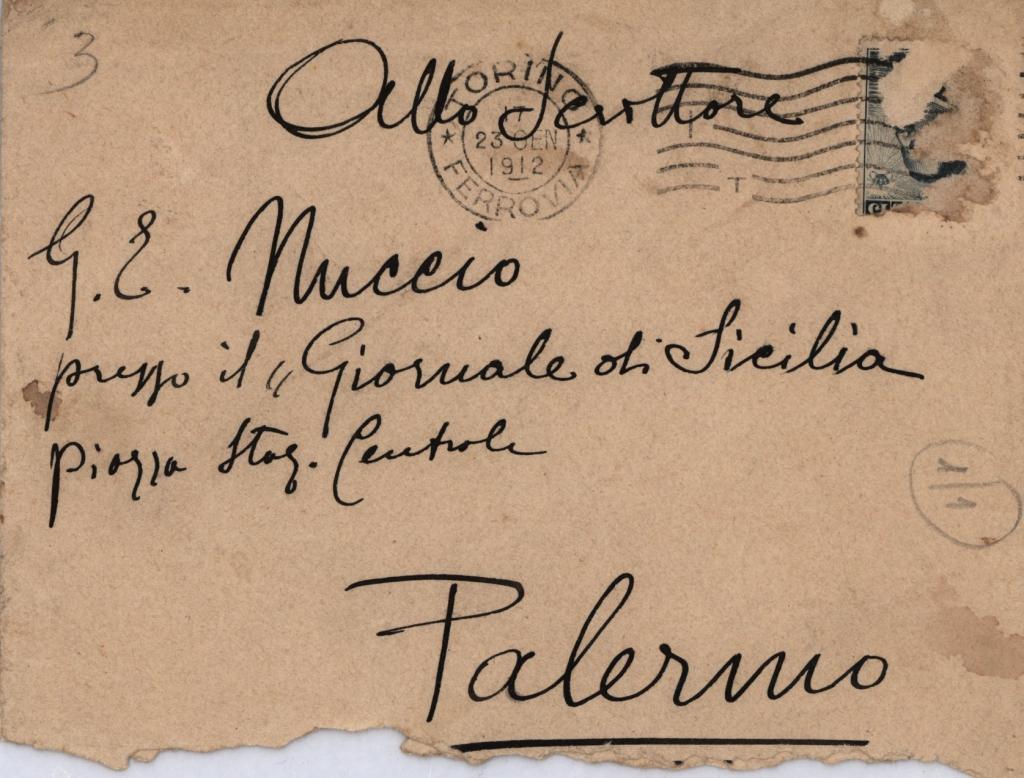 3
Allo Scrittore
TORINO
23 GEN
1912
FERROVIA
T
G. E. Nuccio
presso il "Giornale di Sicilia
piazza Staz. Centrale
Palermo